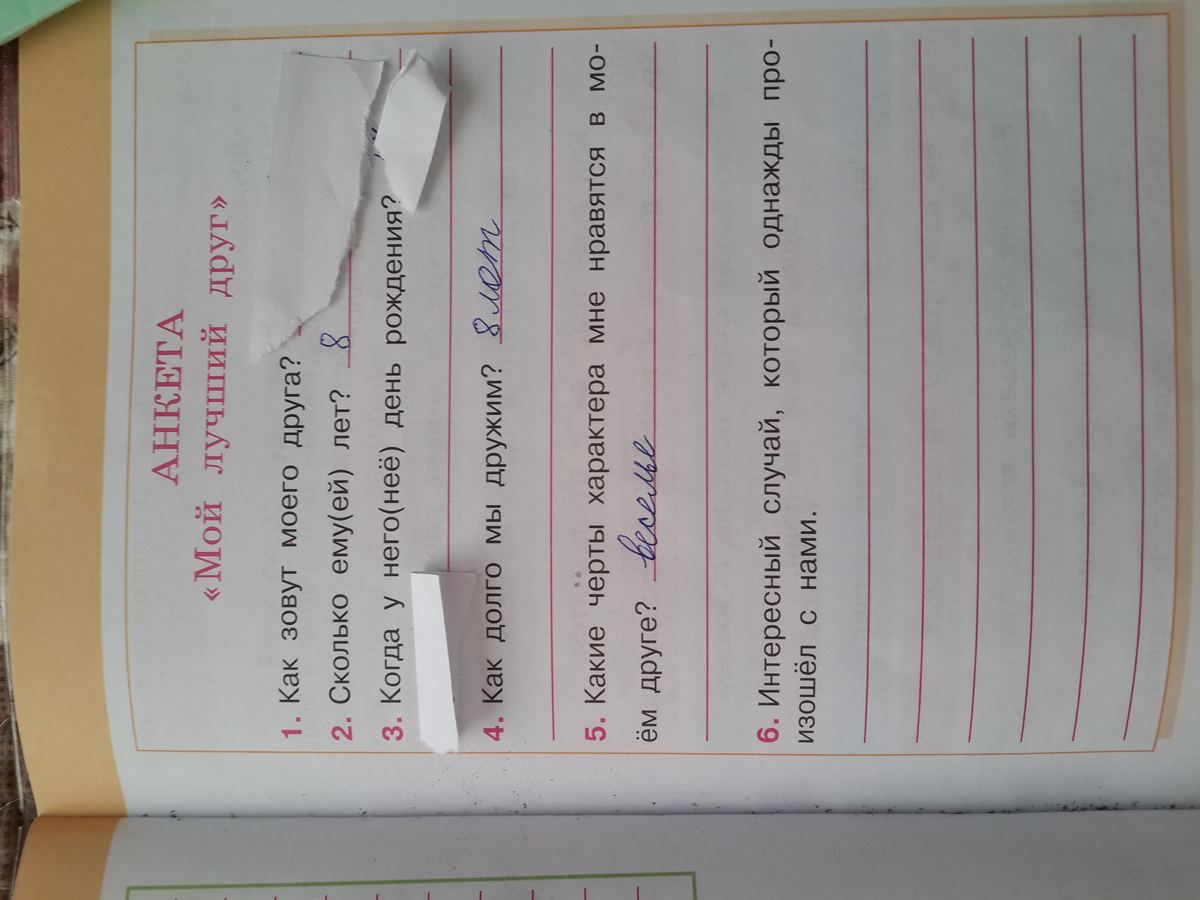 АНКЕТА
«Мой лучший друг»
1. Как зовут моего друга?
2. Сколько ему(ей) лет? 8
3. Когда у него(неё) день рождения?
4. Как долго мы дружим? 8 лет
5. Какие черты характера мне нравятся в мо-
ём друге? веселье
6. Интересный случай, который однажды про-
изошёл с нами.